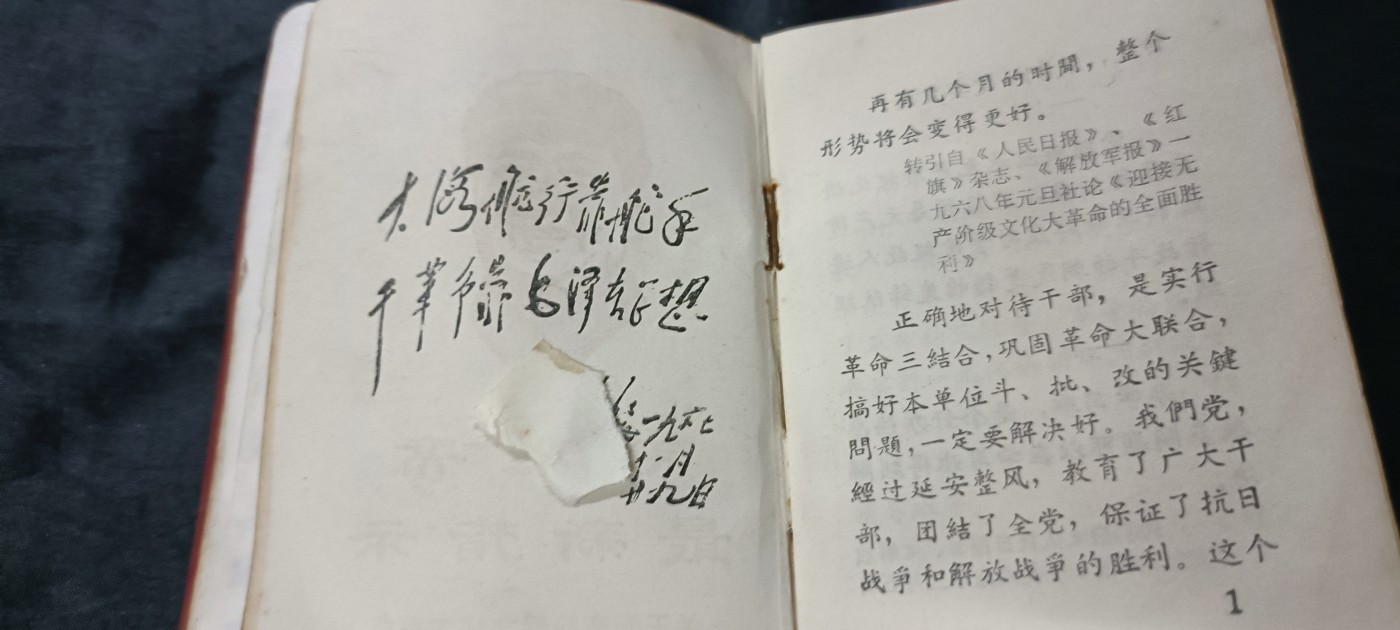 大海航行靠舵手
干革命靠毛泽东思想
一九六七
十一月
廿九日
再有几个月的时間，整个
形势将会变得更好。
转引自《人民日报》、《红
旗》杂志、《解放军报》一
九六八年元旦社论《迎接无
产阶级文化大革命的全面胜
利》
正确地对待干部，是实行
革命三結合，巩固革命大联合，
搞好本单位斗、批、改的关鍵
問題，一定要解决好。我們党，
經过延安整风，教育了广大干
部，团結了全党，保证了抗日
战爭和解放战爭的胜利。这个
1